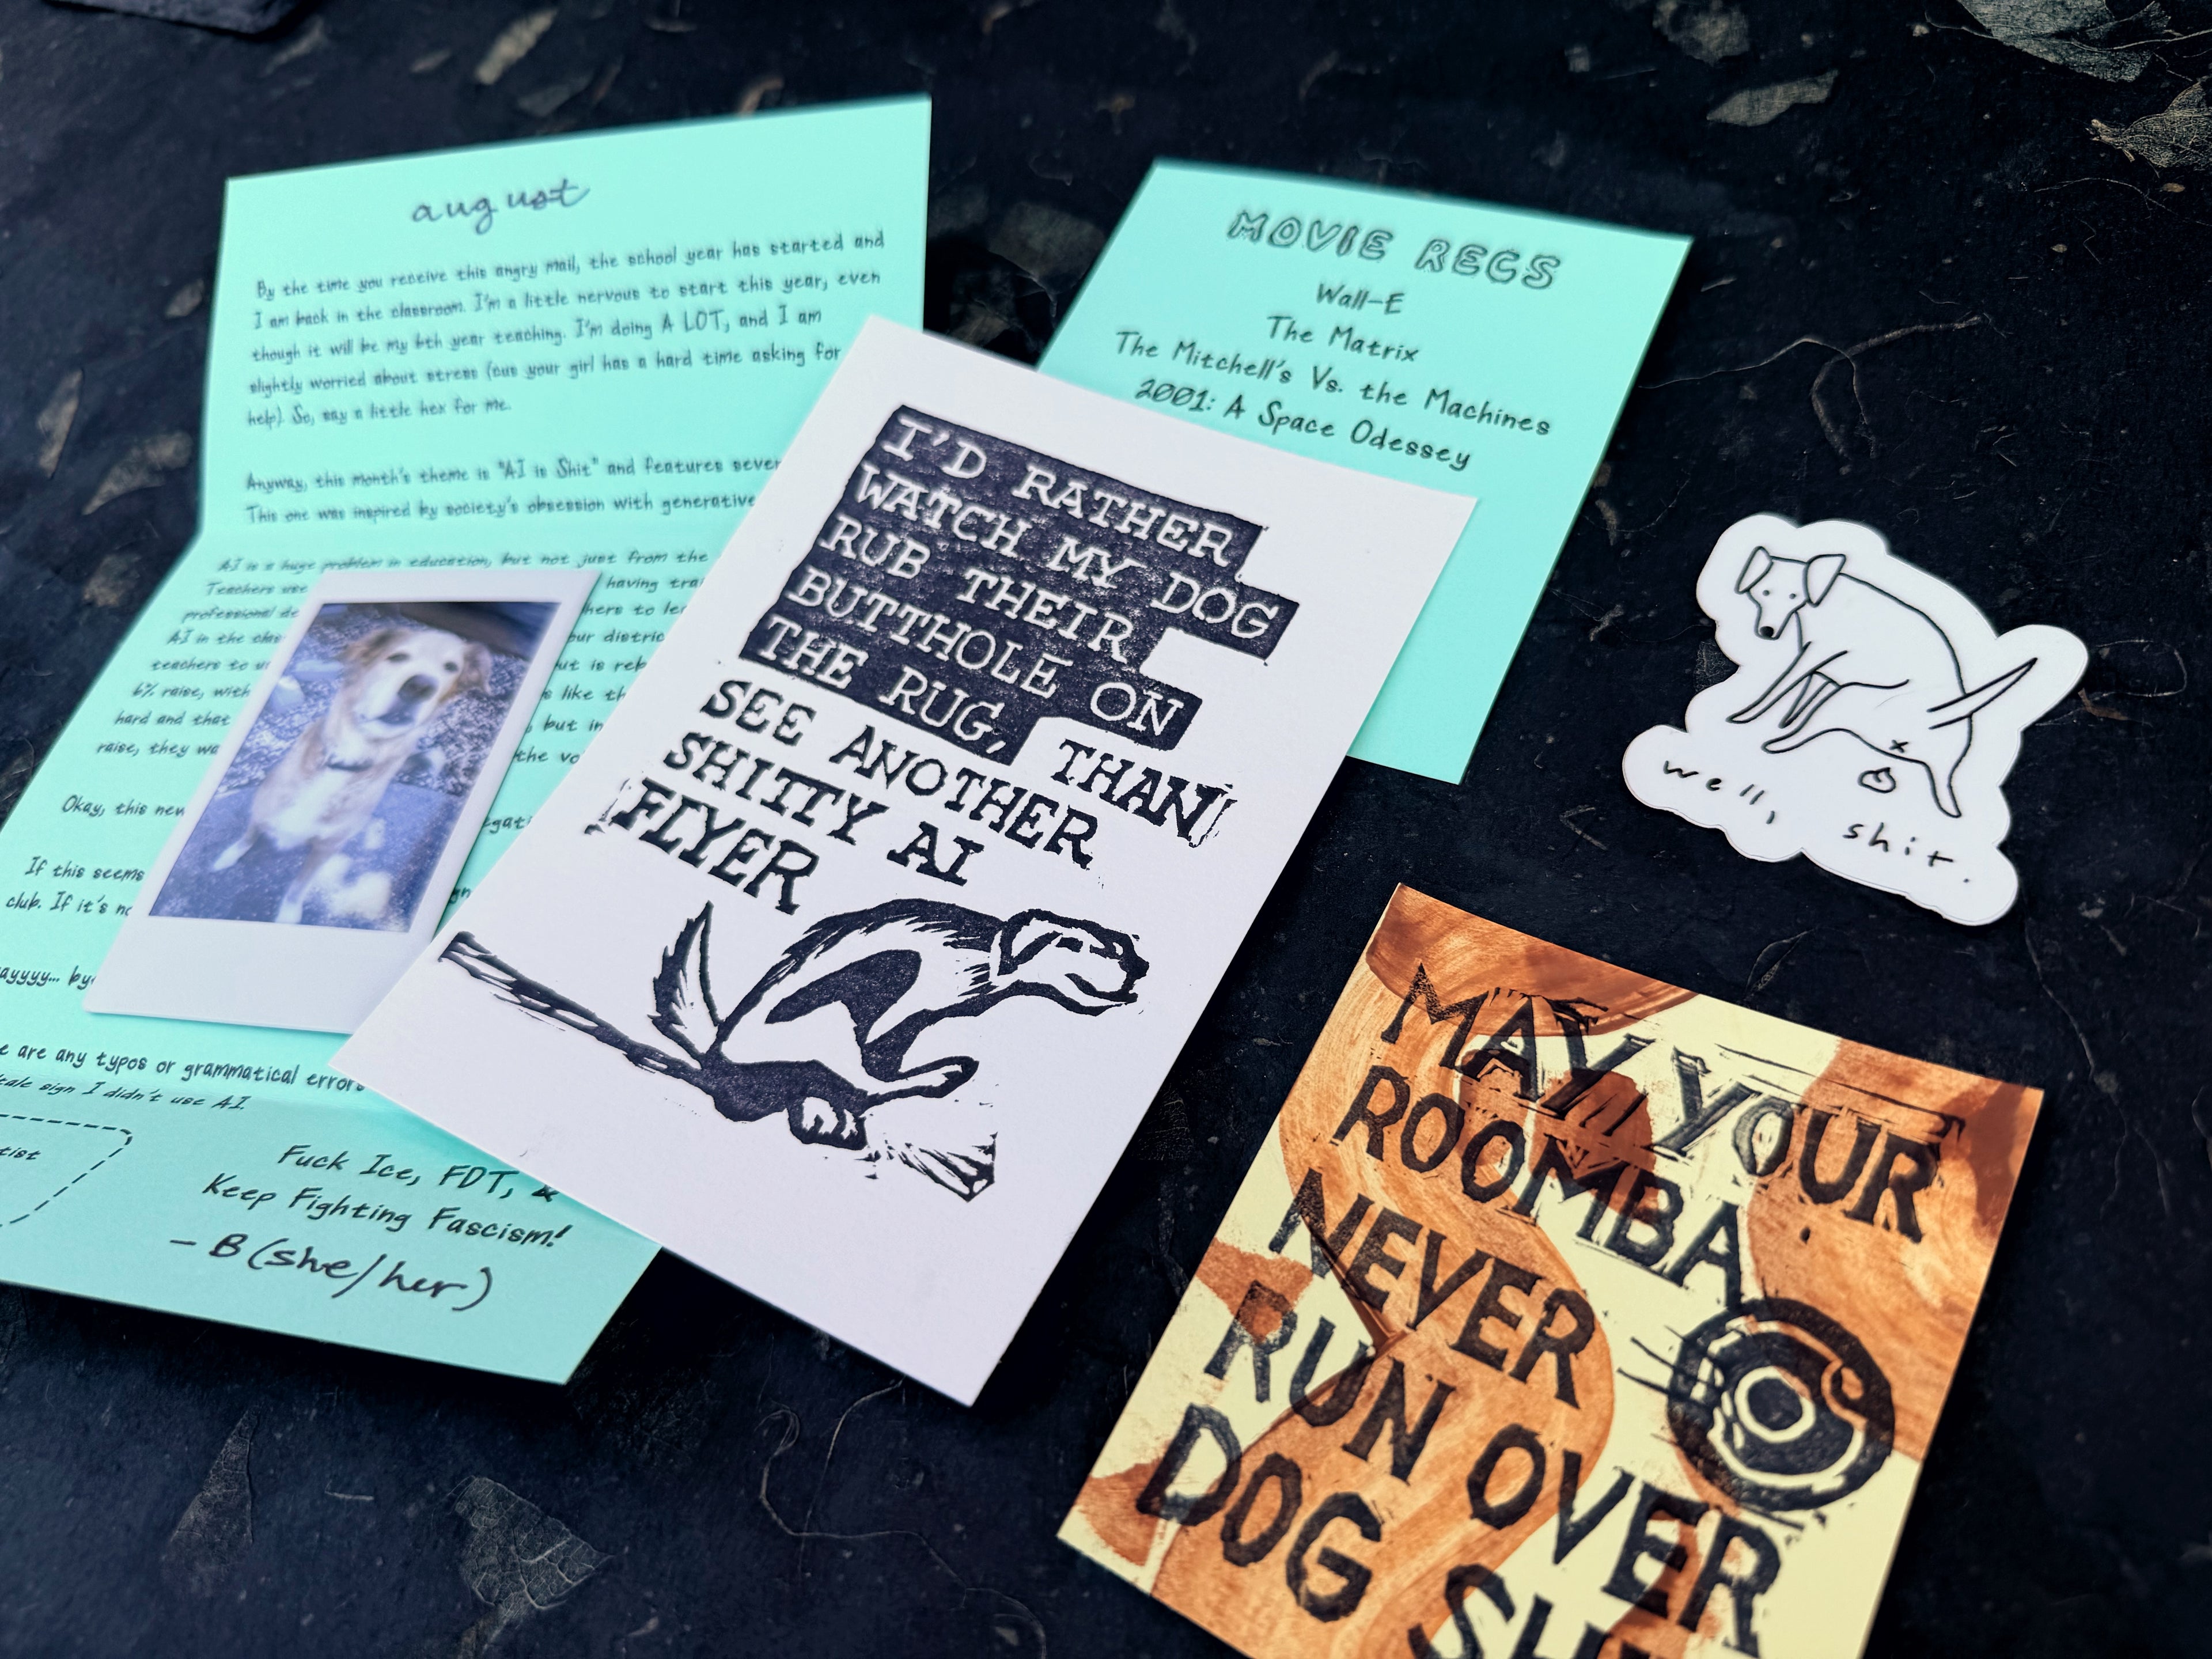 august
By the time you receive this angry mail, the school year has started and
I am back in the classroom. I'm a little nervous to start this year, even
though it will be my 6th year teaching. I'm doing A LOT, and I am
slightly worried about stress (cus your girl has a hard time asking for
help). So, say a little hex for me.
Anyway, this month's theme is "AI is Shit" and features
This one was inspired by society's obsession with generative
AI is a huge problem in education, but not just from the
Teachers use having
professional to
AI in the
teachers to
6% raise, with like
hard and that but
raise, they the
Okay, this
If this seems
club. If it's
are any typos or grammatical errors
sign I didn't use AI.
Fuck Ice, FDT, &
Keep Fighting Fascism!
- B (she/her)
MOVIE RECS
Wall-E
The Matrix
The Mitchell's Vs. the Machines
2001: A Space Odessey
I'D RATHER
WATCH MY DOG
RUB THEIR
BUTTHOLE ON
THE RUG, THAN
SEE ANOTHER
SHITTY AI
FLYER
well, shit.
MAY YOUR
ROOMBA
NEVER
RUN OVER
DOG